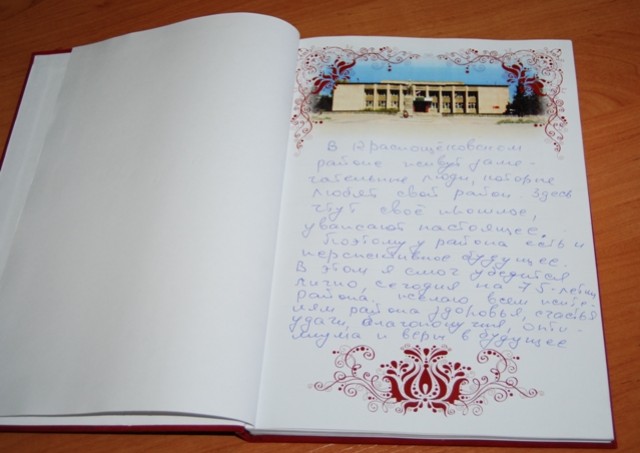 В Краснощёковском
районе живут заме-
чательные люди, которые
любят свой район. Здесь
чтут своё прошлое,
уважают настоящее.
Поэтому у района есть и
перспективное будущее.
В этом я смог убедится
лично, сегодня на 75-летии
района. Желаю всем жите-
лям района здоровья, счастья
удачи, благополучия, опти-
мизма и веры в будущее